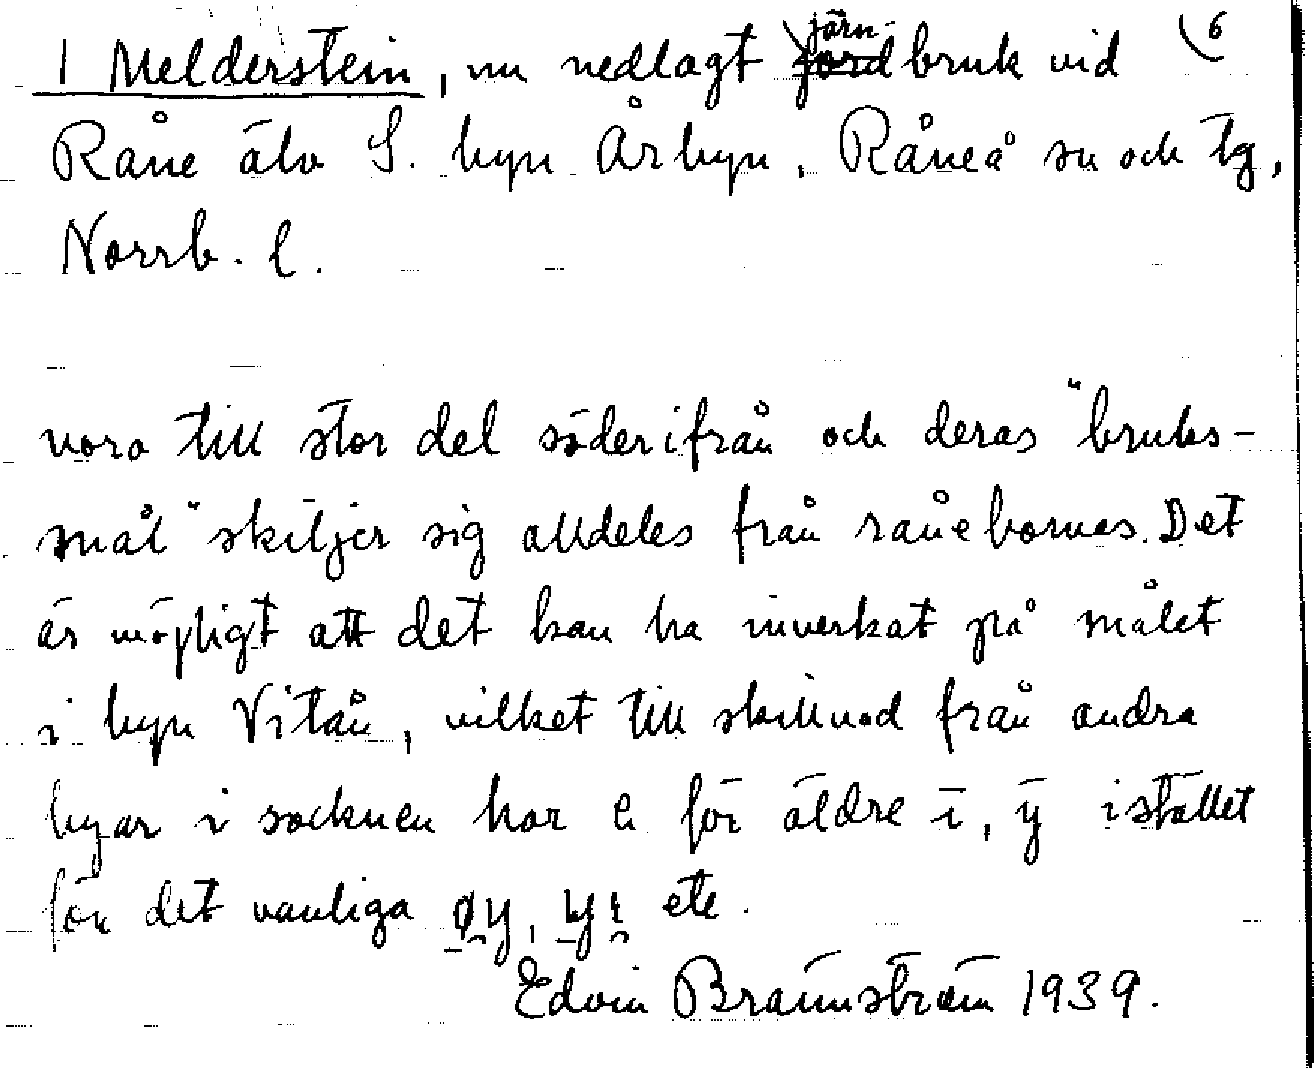 1 Melderstein, nu nedlagt järnbruk vid (6
Råne älv S. byn Årbyn, Råneå sn och tg,
Norrb. l.
vora till stor del söderifrån och deras "bruks-
mål" skiljer sig alldeles från rånebornas. Det
är möjligt att det kan ha inverkat på målet
i byn Vitån, vilket till skillnad från andra
byar i socknen har ei för äldre ī, ȳ istället
för det vanliga øy, etc.
Edvin Brännström 1939.